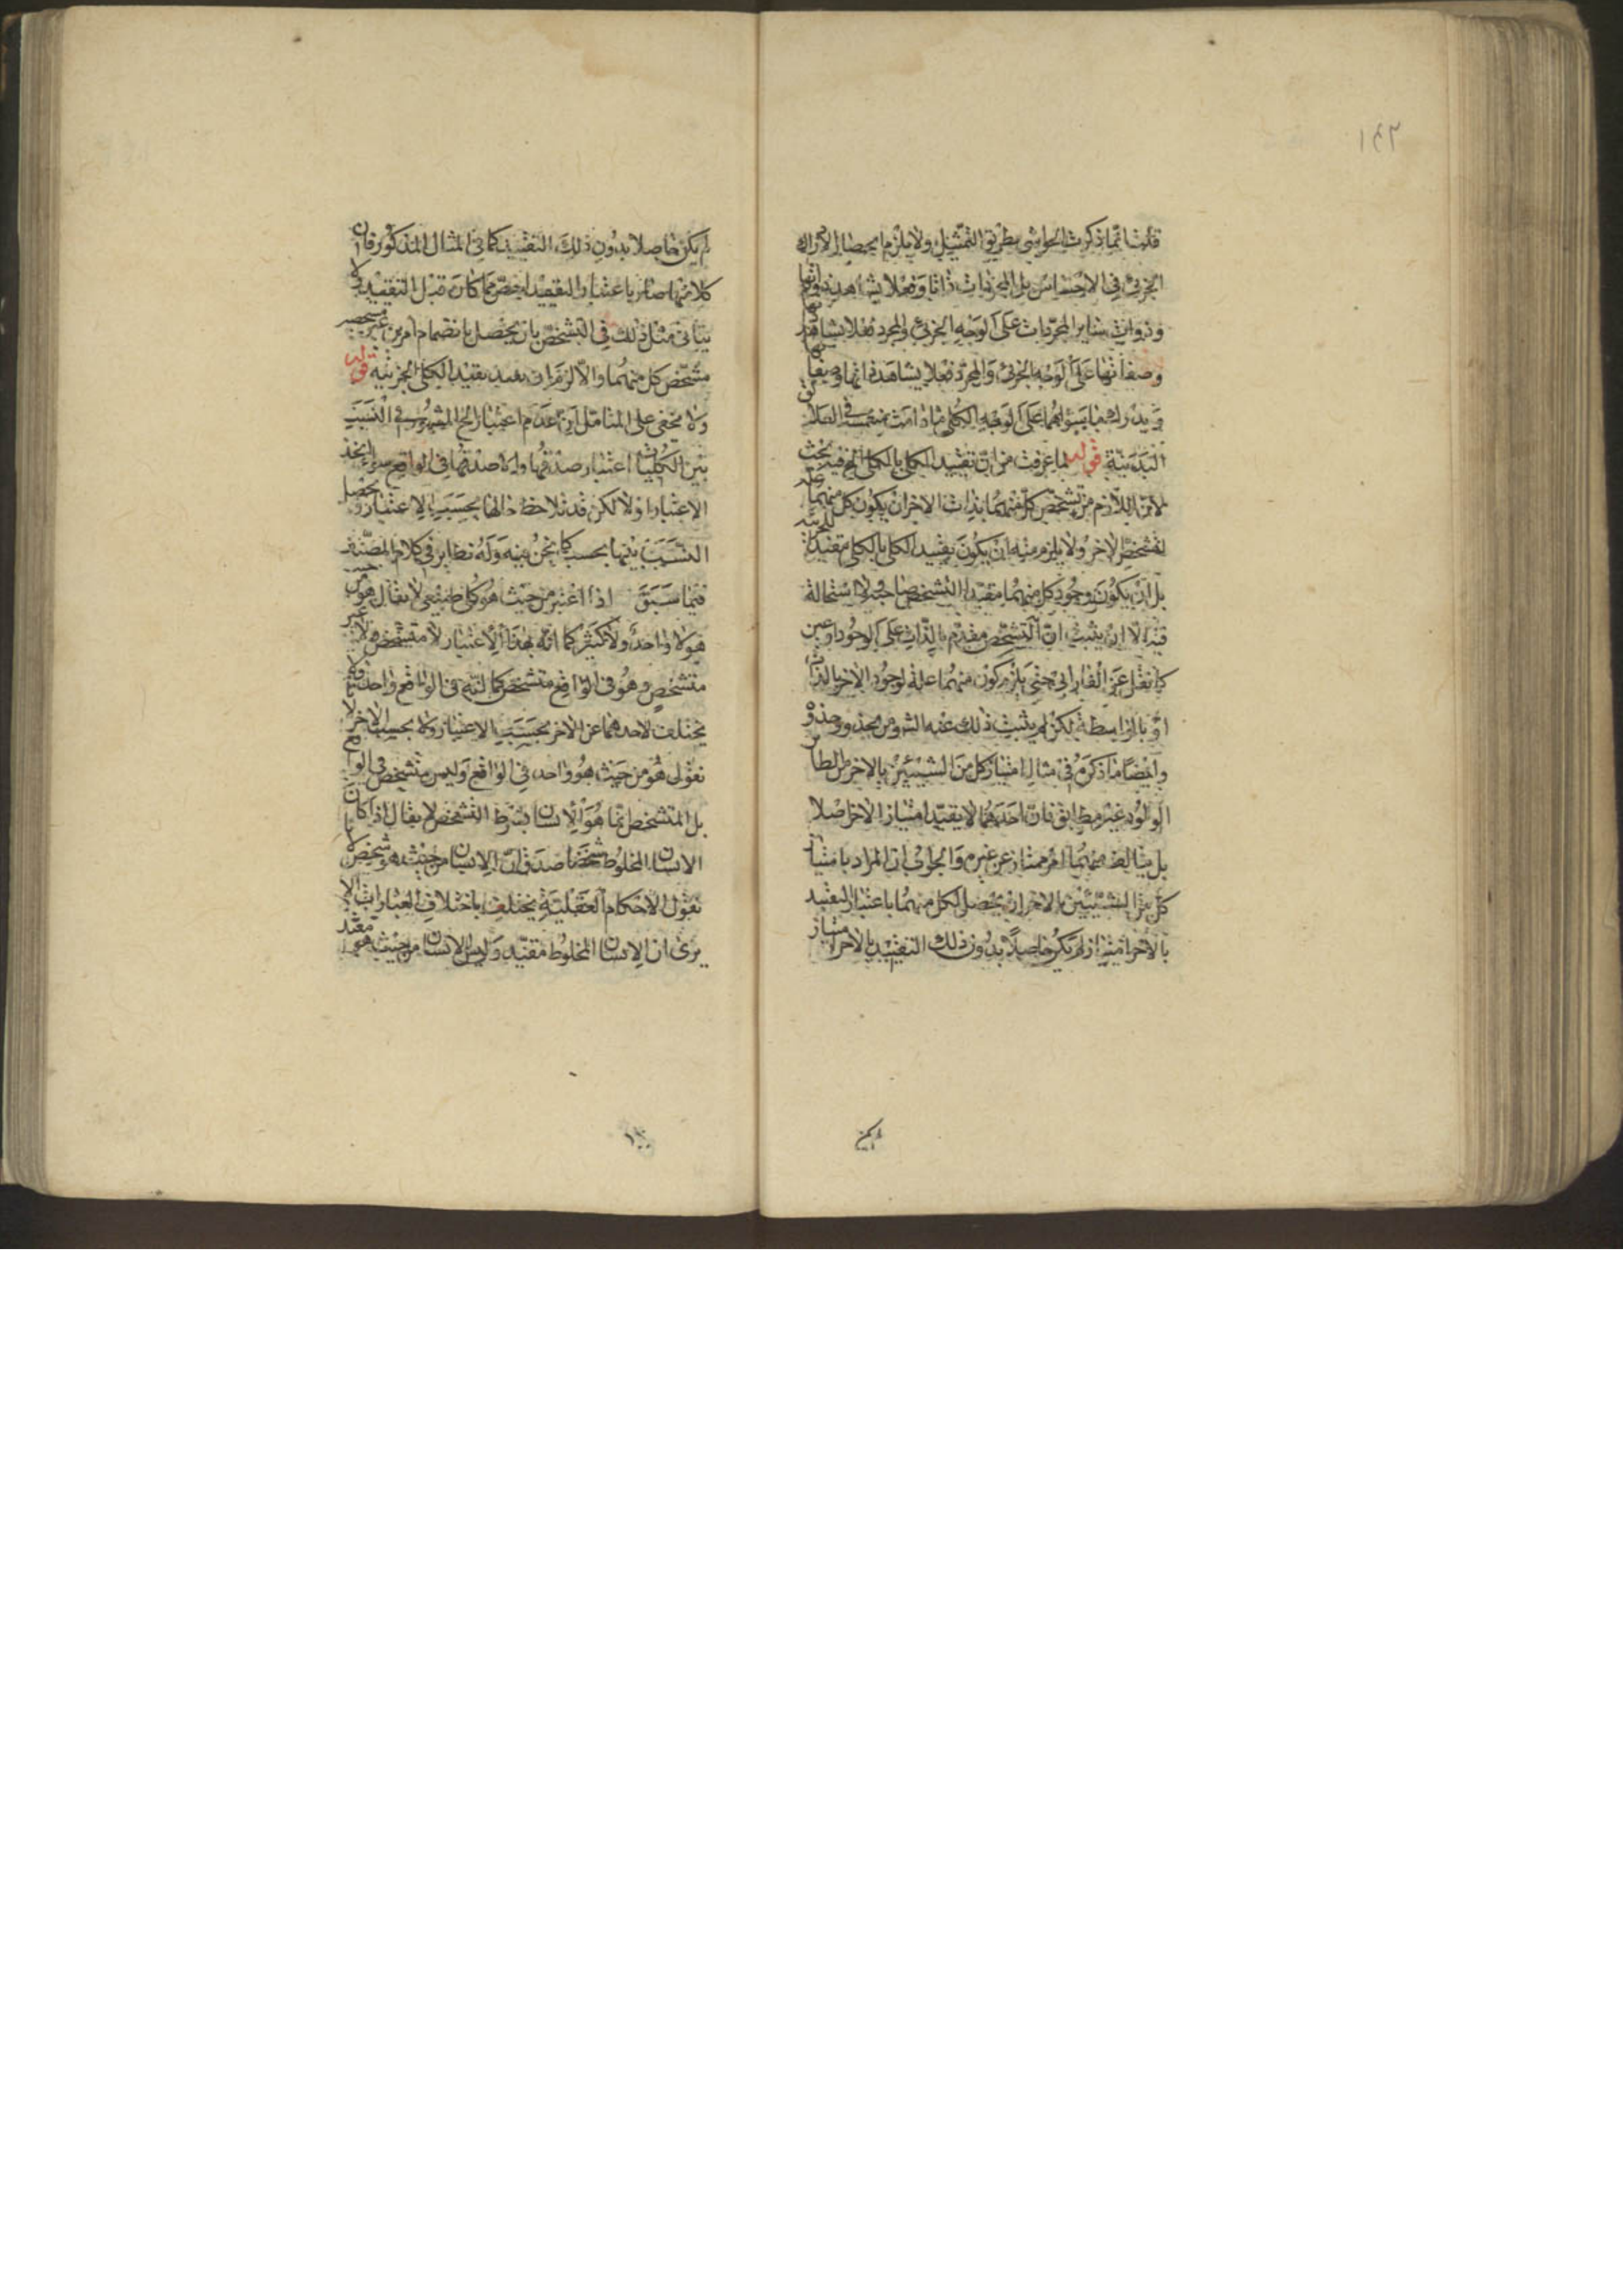 قلت انما ذكرت الحواس بطريق التمثيل ولا يلزم انحصار الادراك
الجزئى فى الاحساس بل المجردات ذاتا وفعلا يشاهد ذواتها
وذوات سائر المجردات على الوجه الجزئى والمجرد فعلا يشاهد
وصفاتها على الوجه الجزئى والمجرد فعلا يشاهد ذاتها وصفاتها
ويدرك ما سواهما على الوجه الكلى ما دامت منغمسة فى العلائق
البدنية قوله لما عرفت من ان تقييد الكلى بالكلى الخ فيه بحث
لان اللازم من تشخص كل منهما بذات الاخر ان يكون كل منهما علة
لتشخص الاخر ولا يلزم منه ان يكون تقييد الكلى بالكلى مقيدا للجزئية
بل ان يكون وجود كل منهما مقيدا لتشخص صاحبه ولا استحالة
فيه الا ان يثبت ان التشخص مقدم بالذات على الوجود او عين
كما نقل عن الفارابى حتى يلزم كون منهما علة لوجود الاخر بالذات
او بالواسطة لكن لم يثبت ذلك عنه الشو من محذور
وايضا ما ذكره فى مثال امتياز كل من الشيئين بالاخر من الطائر
الولود غير مطابق فان احدهما لا يقيد امتياز الاخر اصلا
بل يتالف منهما امر ممتاز عن غيره والجواب ان المراد بامتياز
كل من الشيئين بالاخر ان يحصل لكل منهما باعتبار التقييد
بالاخر امتياز لم يكن حاصلا بدون ذلك التقييد بالاخر امتياز
لم يكن
١٤٢
لم يكن حاصلا بدون ذلك التقييد كما فى المثال المذكور فان
كلا منها صار باعتبار التقييد اخص مما كان قبل التقييد ولا
يتاتى مثل ذلك فى التشخص بان يحصل بانضمام امرين غير متشخصين
تشخص كل منهما والا لزم ان يفيد تقييد الكلى الجزئية قوله
ولا يخفى على المتامل ان عدم اعتبار الخ المشهور فى النسب
بين الكليات اعتبار صدقها ولا صدقها فى الواقع سواء اتحد
الاعتبار اولا لكن قد تلاحظ حالها بحسب الاعتبار ويحصل
النسب بينها بحسبه كما نحن فيه وله نظاير فى كلام المصنف
فيما سبق اذا اعتبر من حيث هو كلى طبيعى لا يقال هو من حيث
هو لا واحد ولا كثير كما انه بهذا الاعتبار لا متشخص ولا غير
متشخص وهو فى الواقع متشخص كما انه فى الواقع واحد فلا
يختلف لاحدهما عن الاخر بحسب الاعتبار ولا بحسب الاخر لانا
نقول هو من حيث هو واحد فى الواقع وليس متشخص فى الواقع
بل المتشخص انما هو الانسان بشرط التشخص لا يقال اذا كان
الانسان المخلوط شخصا صدق ان الانسان من حيث هو شخص لانا
نقول الاحكام العقلية يختلف باختلاف العبارات الا
يرى ان الانسان المخلوط مقيد وليس الانسان من حيث هو مقيد